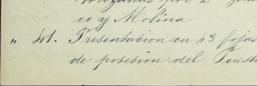 co y Molina
" 41. Presentacion en 43 fojas
de posesión del